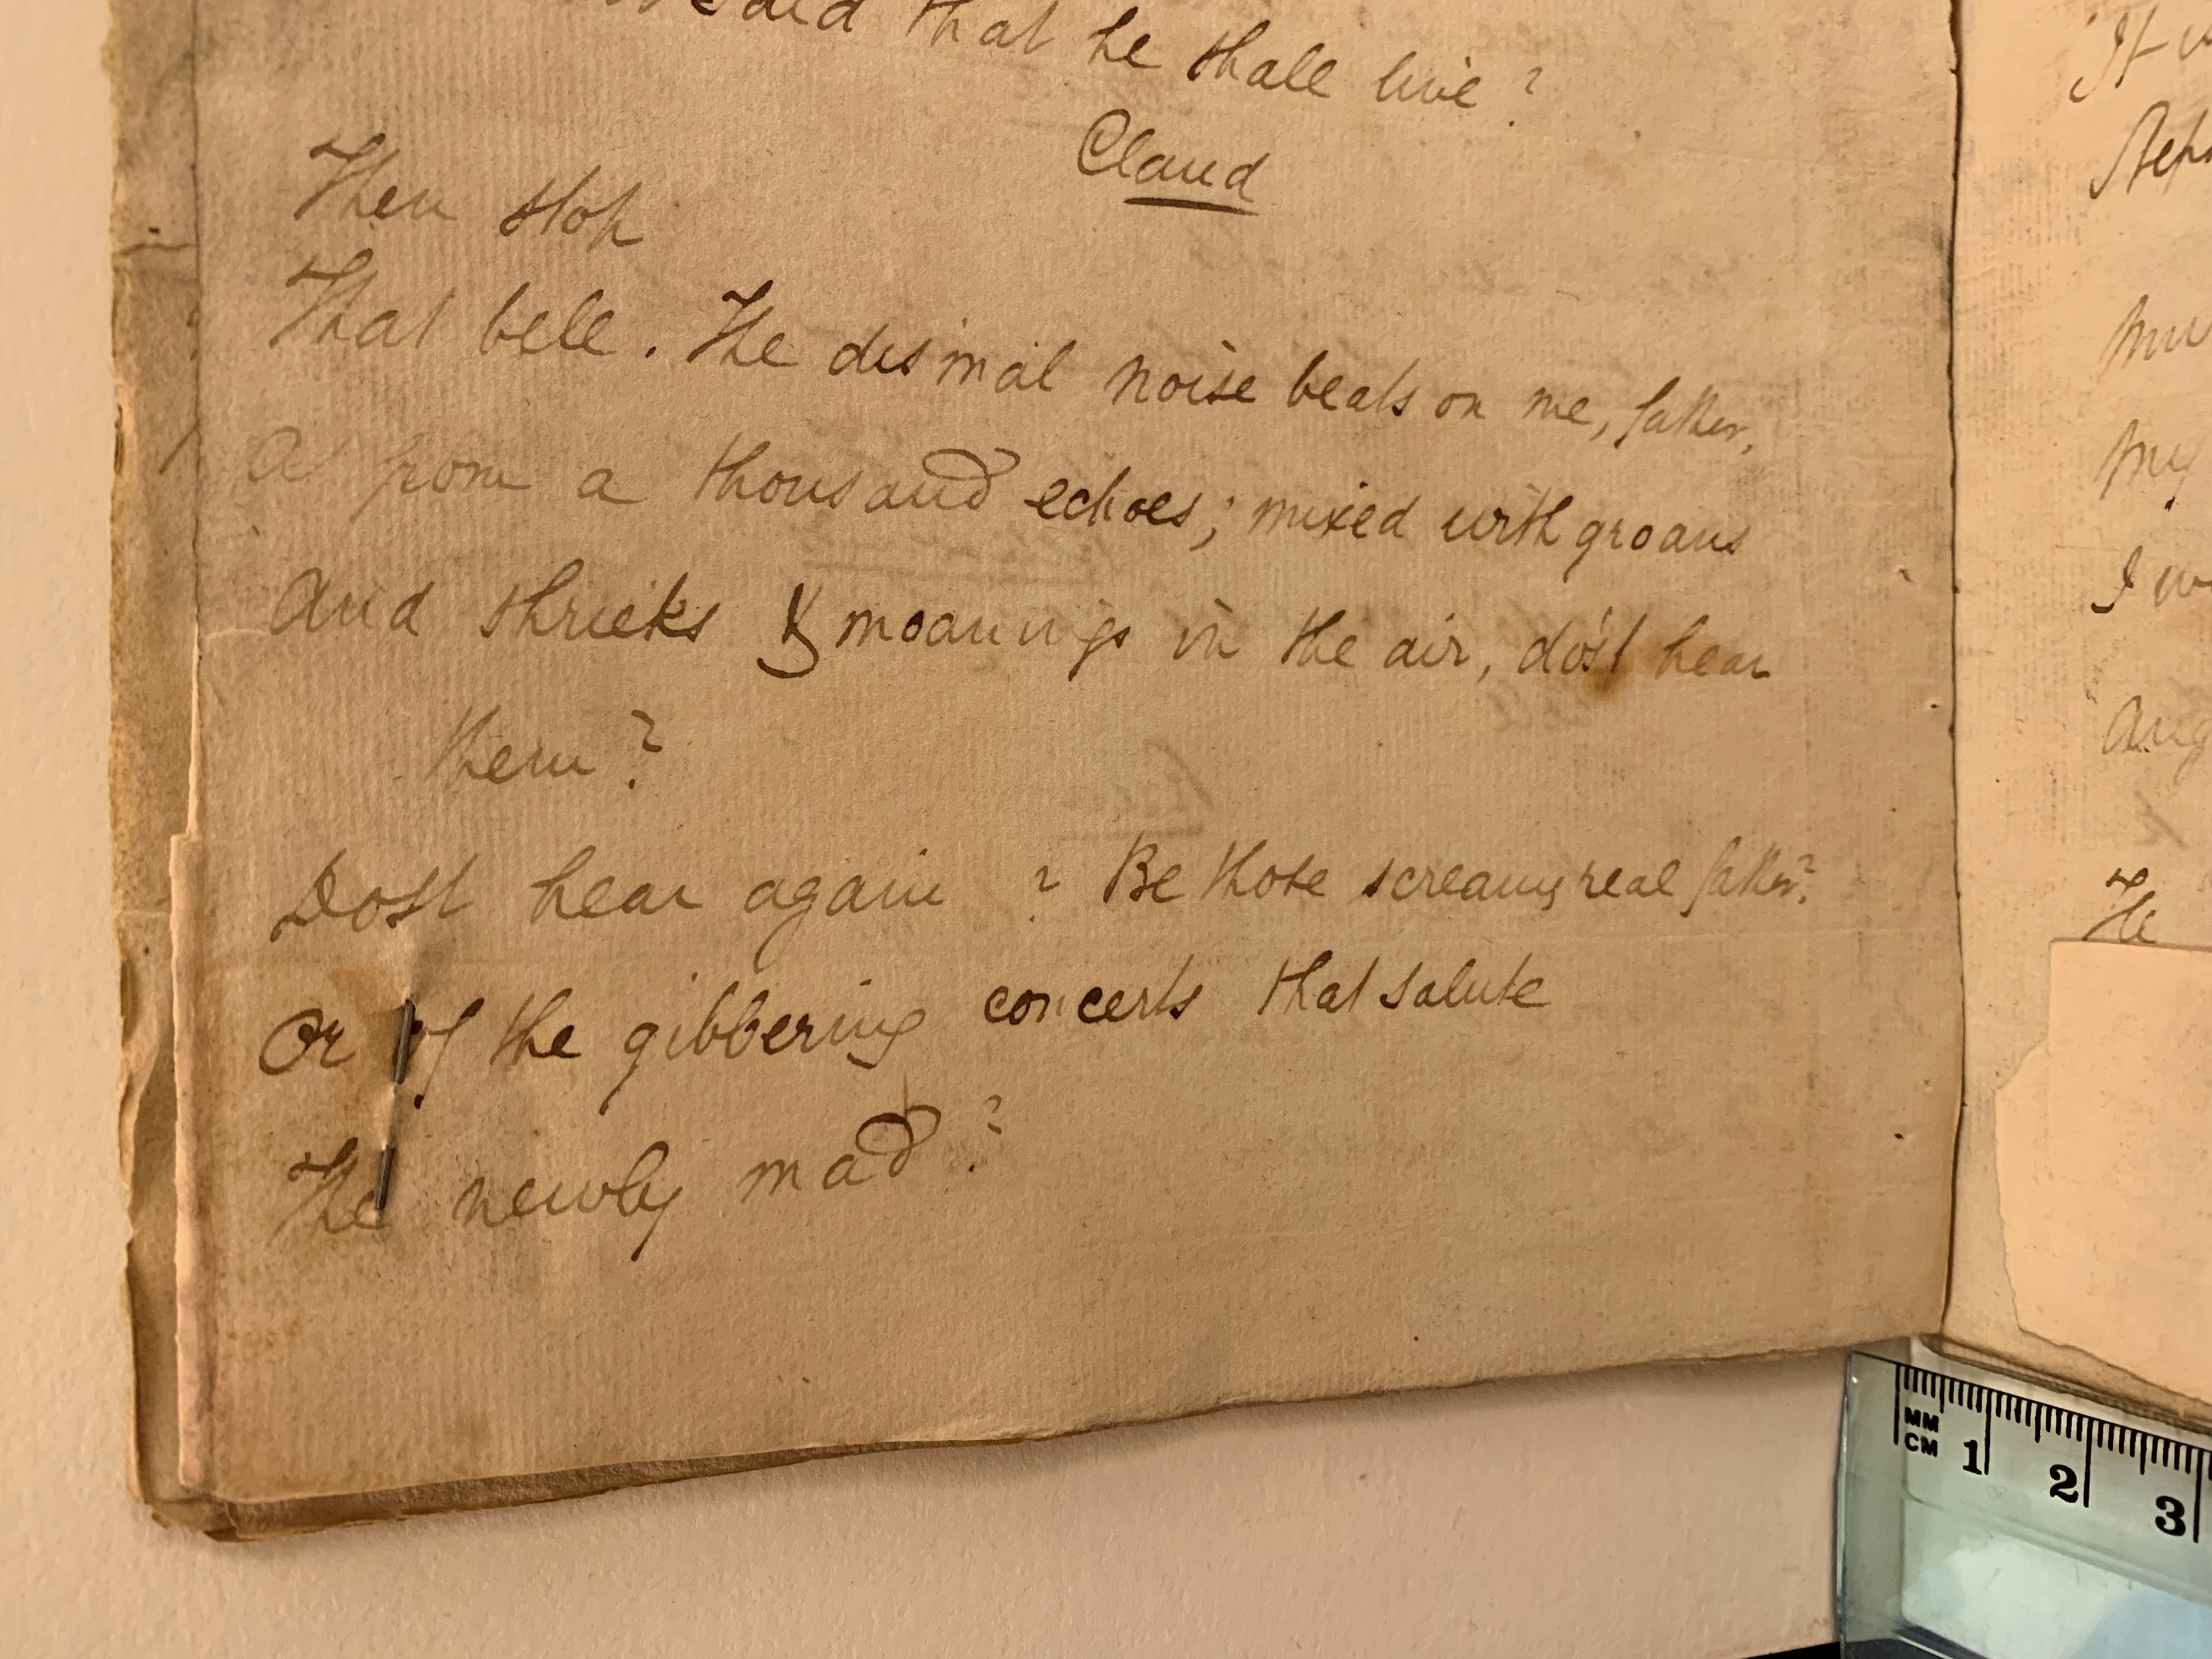 that he shall live?
Claud
Then stop
That bell. The dismal noise beats on me, father,
As from a thousand echoes; mixed with groans
And shrieks & moanings in the air, do'st hear
them?
Dost hear again? Be those screams real father?
Or of the gibbering concerts that salute
The newly mad?
It
my
I
The
MM
CM 1 2 3